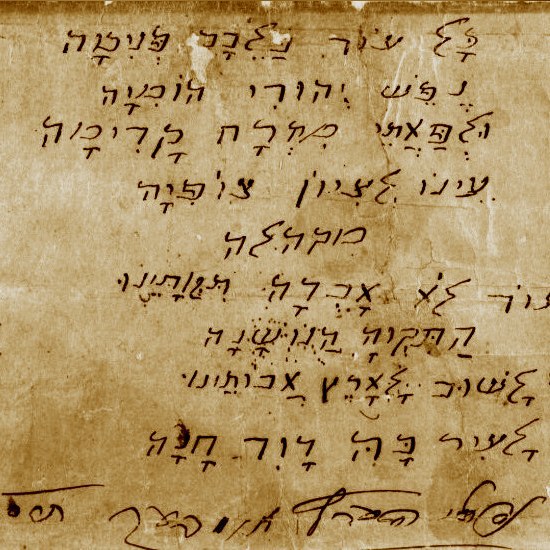 כָּל עוֹד בַלֵּבָב פְּנִימָה
נֶפֶשׁ יְהוּדִי הוֹמִיָּה
וּלְפַאֲתֵי מִזְרָח קָדִימָה
עֵינוֹ לְצִיּוֹן צוֹפִיָּה
מקהלה
עוֹד לֹא אָבְדָה תִּקְוָתֵינוּ
הַתִּקְוָה הַנּוֹשָׁנָה
לָשׁוּב לָאָרֶץ אֲבוֹתֵינוּ
לָעִיר בָּהּ דָּוִד חָנָה
נפתלי הערץ